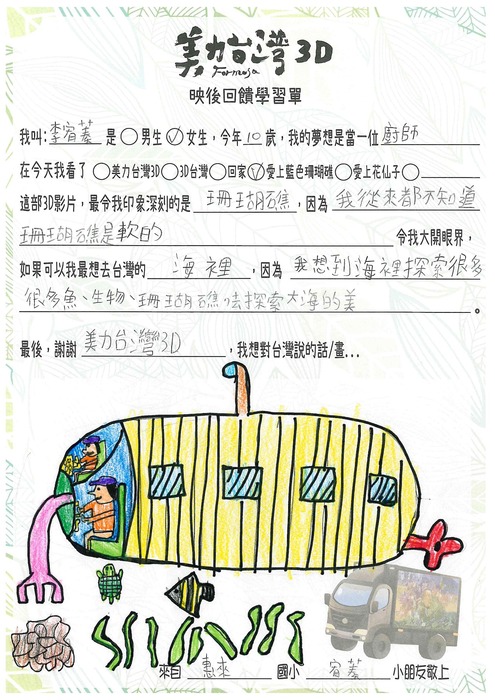 美力台灣3D
Formosa
映後回饋學習單
我叫:李宥蓁 是○男生☑女生，今年10歲，我的夢想是當一位廚師
在今天我看了○美力台灣3D○3D台灣○回家☑愛上藍色珊瑚礁○愛上花仙子○
這部3D影片，最令我印象深刻的是 珊瑚礁，因為 我從來都不知道
珊瑚礁是軟的 令我大開眼界，
如果可以我最想去台灣的 海裡，因為 我想到海裡探索很多
很多魚、生物、珊瑚礁，去探索大海的美。
最後，謝謝 美力台灣3D，我想對台灣說的話/畫...
來自 惠來 國小 宥蓁 小朋友敬上